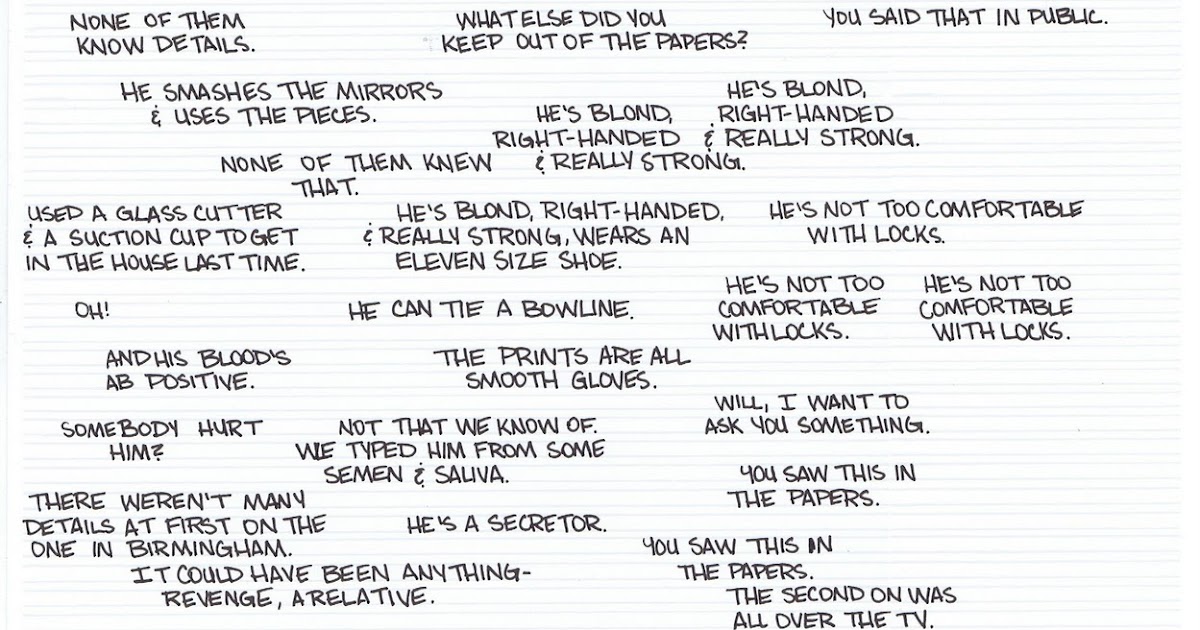 NONE OF THEM
KNOW DETAILS.
WHAT ELSE DID YOU
KEEP OUT OF THE PAPERS?
YOU SAID THAT IN PUBLIC.
HE SMASHES THE MIRRORS
& USES THE PIECES.
HE'S BLOND,
RIGHT-HANDED
& REALLY STRONG.
HE'S BLOND,
RIGHT-HANDED
& REALLY STRONG.
NONE OF THEM KNEW
THAT.
USED A GLASS CUTTER
& A SUCTION CUP TO GET
IN THE HOUSE LAST TIME.
HE'S BLOND, RIGHT-HANDED,
& REALLY STRONG, WEARS AN
ELEVEN SIZE SHOE.
HE'S NOT TOO COMFORTABLE
WITH LOCKS.
OH!
HE CAN TIE A BOWLINE.
HE'S NOT TOO
COMFORTABLE
WITH LOCKS.
HE'S NOT TOO
COMFORTABLE
WITH LOCKS.
AND HIS BLOOD'S
AB POSITIVE.
THE PRINTS ARE ALL
SMOOTH GLOVES.
WILL, I WANT TO
ASK YOU SOMETHING.
SOMEBODY HURT
HIM?
NOT THAT WE KNOW OF.
WE TYPED HIM FROM SOME
SEMEN & SALIVA.
YOU SAW THIS IN
THE PAPERS.
THERE WEREN'T MANY
DETAILS AT FIRST ON THE
ONE IN BIRMINGHAM.
HE'S A SECRETOR.
YOU SAW THIS IN
THE PAPERS.
IT COULD HAVE BEEN ANYTHING-
REVENGE, A RELATIVE.
THE SECOND ON WAS
ALL OVER THE TV.